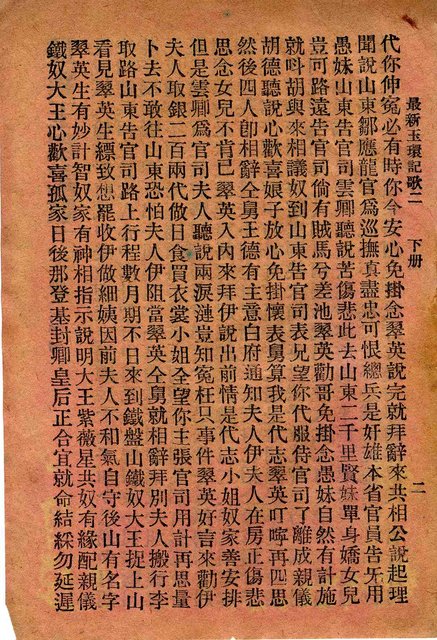 最新玉環記歌二　下册　二
代你伸冤必有時你今安心免掛念翠英說完就拜辭來共相公說起理
聞說山東鄒應龍官爲巡撫真盡忠可恨總兵是奸雄本省官員告旡用
愚妹山東告官司雲卿聽說苦傷悲此去山東二千里賢妹單身嬌女兒
豈可路遠告官司倘有賊馬兮差池翠英勸哥免掛念愚妹自然有計施
就呌胡與來相議奴到山東告官司表兄望你代服侍官司了離成親儀
胡德聽說心歡喜娘子放心免掛懷表舅算我是代志翠英叮嚀再四思
然後四人卽相辭仝舅王德有主意白府通知夫人伊夫人在房正傷悲
思念女兒不肯已翠英入內來拜伊說出前情是代志小姐奴家善安排
但是雲卿爲官司夫人聽說兩淚漣豈知冤枉只事件翠英好言來勸伊
夫人取銀二百兩代做日食買衣裳小姐全望你主張官司用計再思量
卜去不敢往山東恐怕夫人伊阻當翠英全舅就相辭拜別夫人搬行李
取路山東告官司路上行程數月期不日來到鐵盤山鐵奴大王捉上山
看見翠英生縹致想罷收伊做細姨因前夫人不和氣自守後山有名字
翠英生有妙計智奴家有神相指示說明大王紫薇星共奴有緣配親儀
鐵奴大王心歡喜孤家日後那登基封卿皇后正合宜就命結綵勿延遲